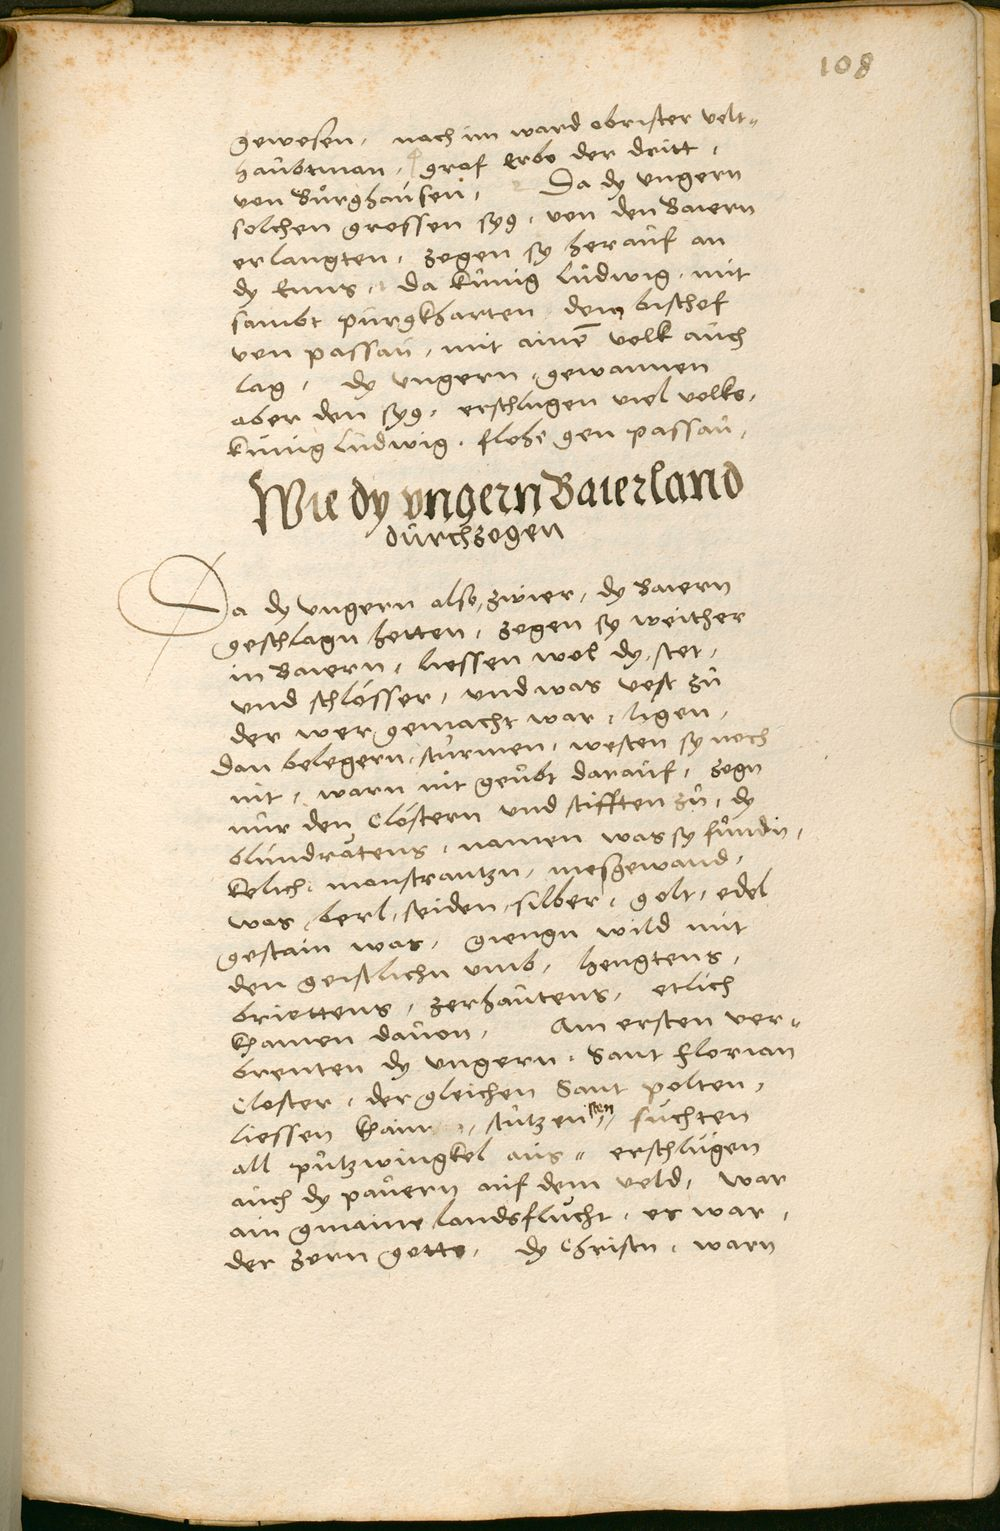 108
gewesen, nach im ward obrister velt-
haubtman, graf Erbo der dritt,
von Burghausen, Da dy ungern
solchen grossen syg, von den Baiern
erlangten, zogen sy herauf an
dy Enns, da künig Ludwig, mit
sambt pürgkharten dem bischof
von passau, mit ainē volk auch
lag, dy vngern gewannen
aber den syg, erschlugen viel volks,
künig ludwig, flohe gen passau,
Wie dy vngern Baierland
durchzogen
Da dy vngern also, zwier, dy Baiern
geschlagn hetten, zogen sy weither
in Baiern, liessen wol dy stet,
vnd schlösser, vnd was vest zu
der wer gemacht war, ligen,
dan belegern, sturmen, westen sy noch
nit, warn nit geübt darauf, zogn
nur den Clöstern vnd stifften zu, dy
blündratens, namen was sy fundn,
kelich, monstrantzn, mesgewand,
was berl, seiden, silber, golt, edel
gestain was, giengn wild mit
den geistlichn vmb, hengtens,
briettens, zerhautens, etlich
khamen dauon, Am ersten ver-
brenten dy vngern, Sant florian
Closter, der gleichen Sant polten,
liessen khain, stutzen sten, suchten
all putzwingkel aus, erschlugen
auch dy pauern auf dem veld, war
ain gmaine landsflucht, es war,
der zorn gotts, dy Christn, warn